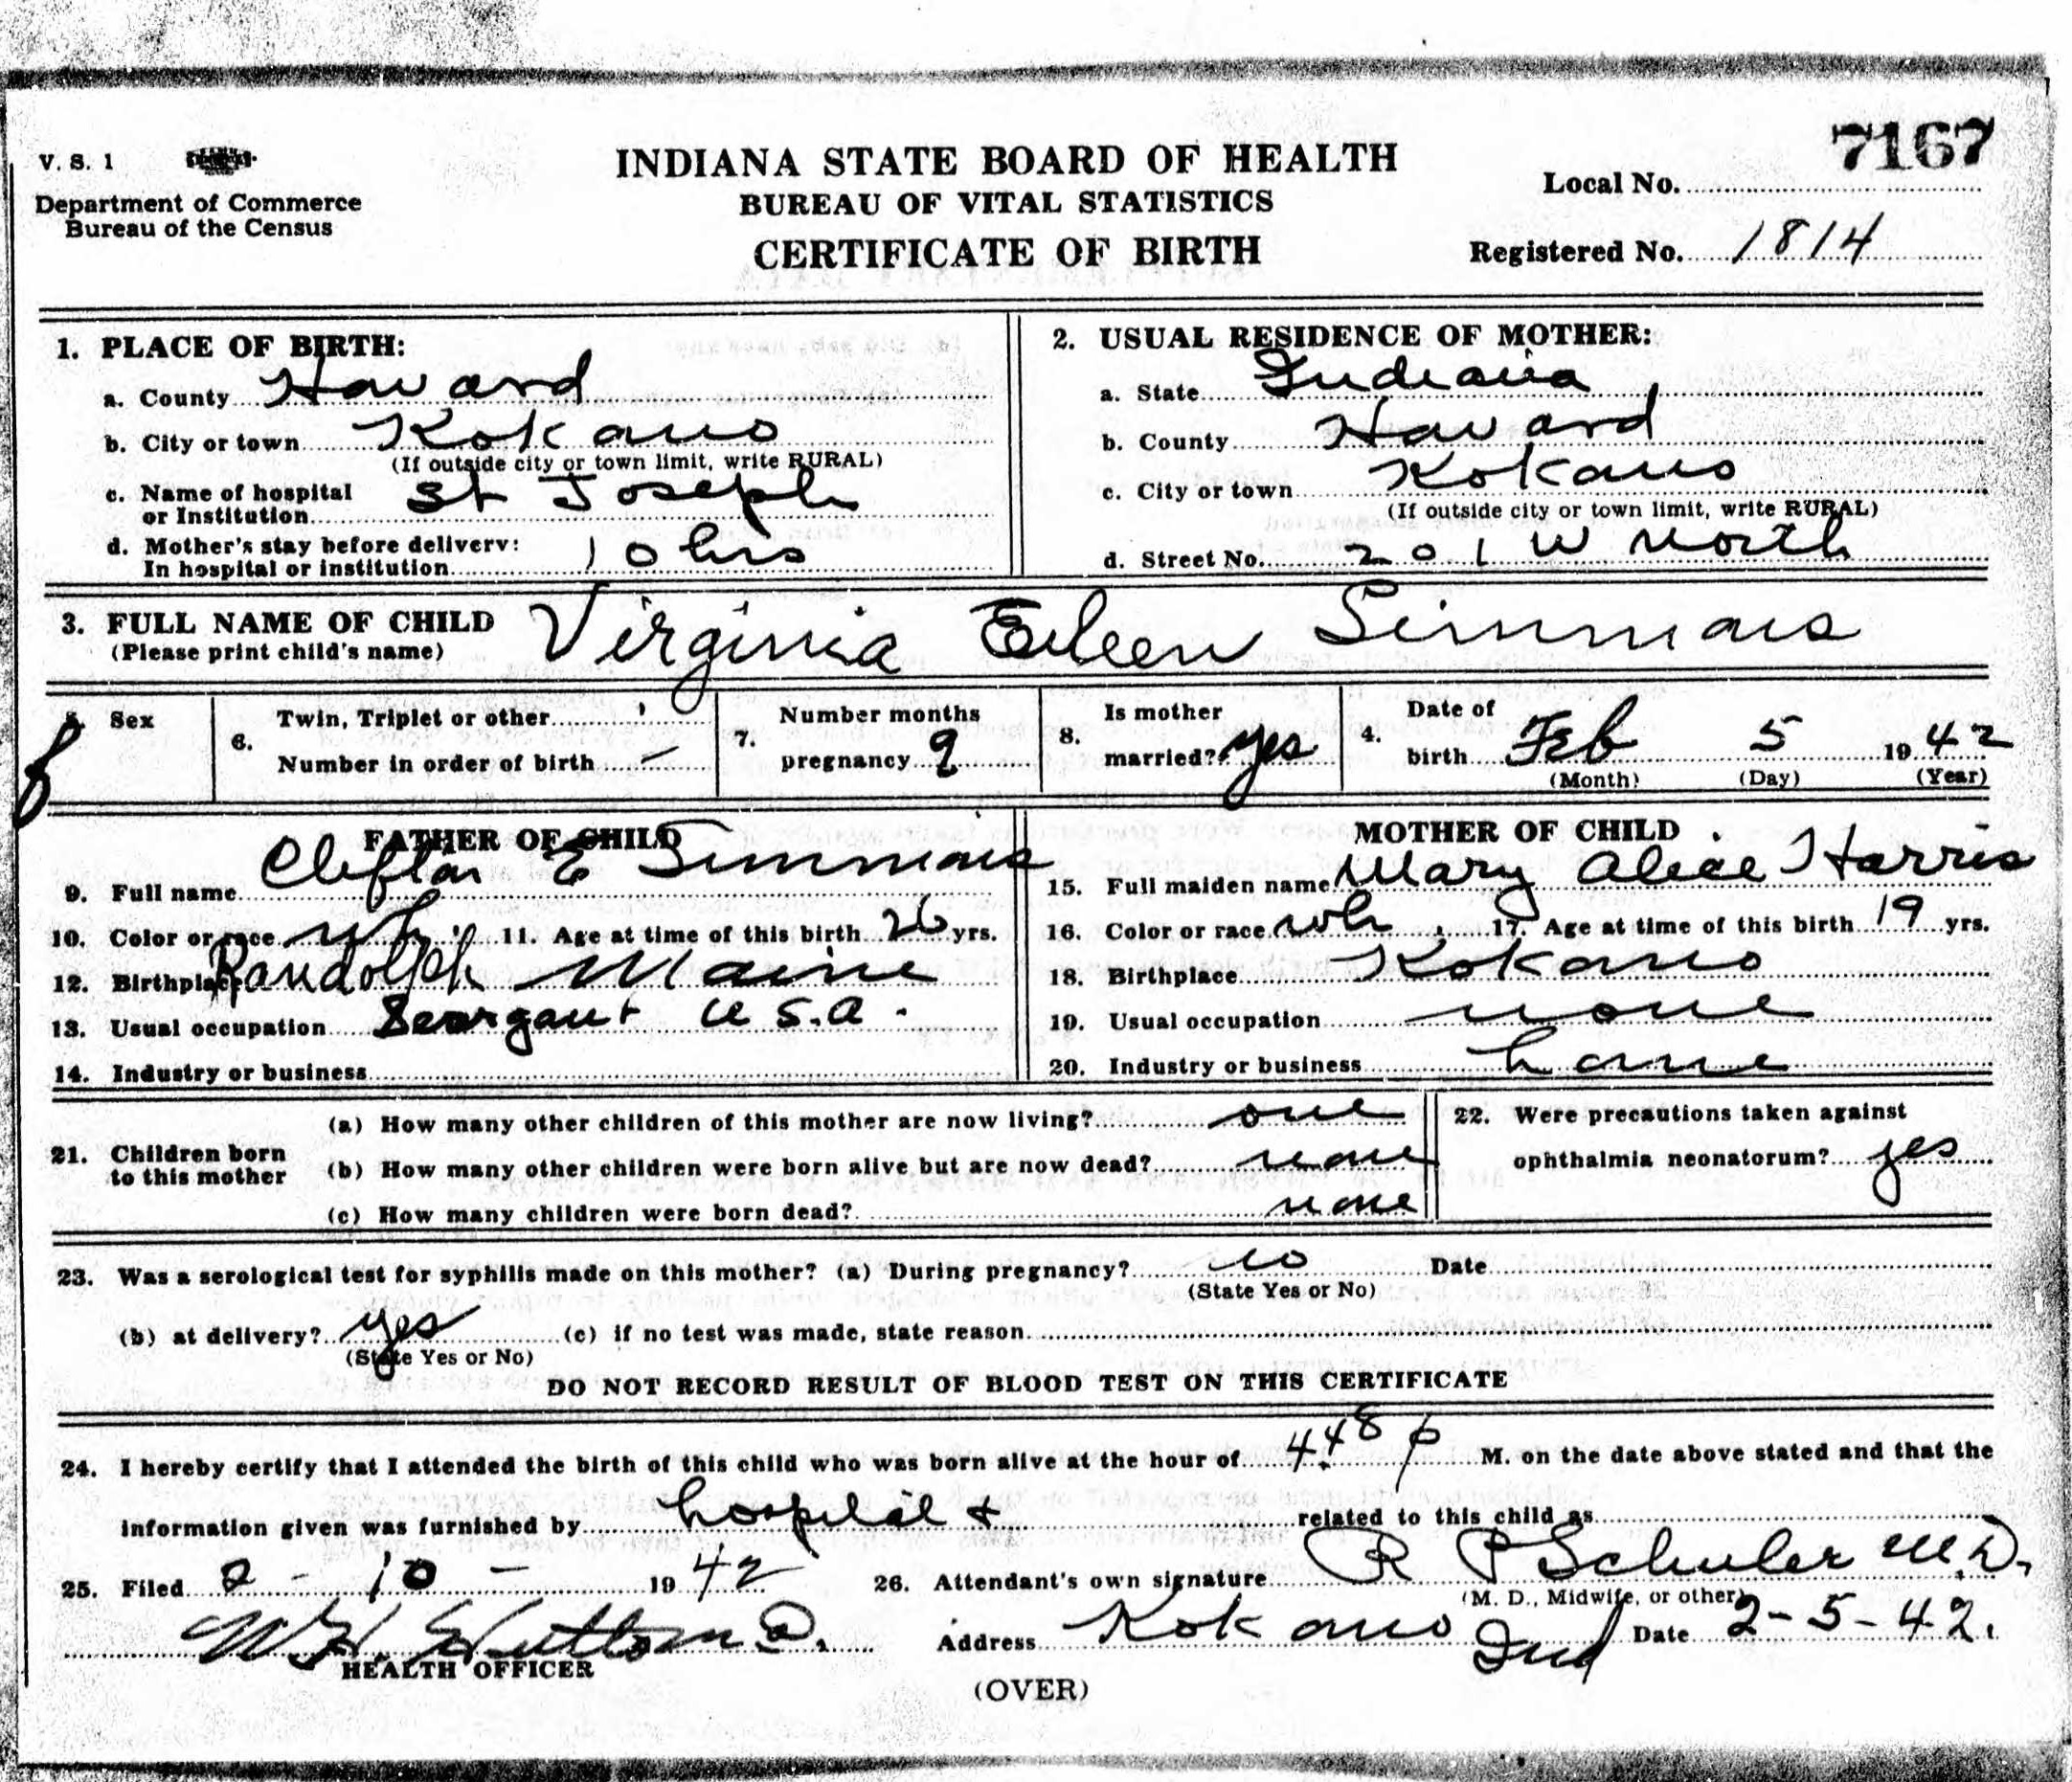 7167
V. S. 1
INDIANA STATE BOARD OF HEALTH
Local No.
Department of Commerce
BUREAU OF VITAL STATISTICS
Bureau of the Census
CERTIFICATE OF BIRTH
Registered No. 1814
1. PLACE OF BIRTH:
a. County Howard
b. City or town Kokomo
(If outside city or town limit, write RURAL)
c. Name of hospital
or Institution St Joseph
d. Mother's stay before delivery:
In hospital or institution 10 hrs
2. USUAL RESIDENCE OF MOTHER:
a. State Indiana
b. County Howard
c. City or town Kokomo
(If outside city or town limit, write RURAL)
d. Street No. 201 W North
3. FULL NAME OF CHILD Virginia Eileen Simmons
(Please print child's name)
5. Sex f
6. Twin, Triplet or other
Number in order of birth —
7. Number months
pregnancy 9
8. Is mother
married? yes
4. Date of
birth Feb 5 1942
(Month) (Day) (Year)
FATHER OF CHILD
9. Full name Clifton E Simmons
10. Color or race wh 11. Age at time of this birth 26 yrs.
12. Birthplace Randolph Maine
13. Usual occupation Seargant U S.A.
14. Industry or business
MOTHER OF CHILD
15. Full maiden name Mary Alice Harris
16. Color or race wh 17. Age at time of this birth 19 yrs.
18. Birthplace Kokomo
19. Usual occupation none
20. Industry or business home
21. Children born
to this mother
(a) How many other children of this mother are now living? one
(b) How many other children were born alive but are now dead? none
(c) How many children were born dead? none
22. Were precautions taken against
ophthalmia neonatorum? yes
23. Was a serological test for syphilis made on this mother? (a) During pregnancy? no Date
(State Yes or No)
(b) at delivery? yes (c) if no test was made, state reason
(State Yes or No)
DO NOT RECORD RESULT OF BLOOD TEST ON THIS CERTIFICATE
24. I hereby certify that I attended the birth of this child who was born alive at the hour of 4.48 p M. on the date above stated and that the
information given was furnished by hospital + related to this child as
25. Filed 2 - 10 - 1942 26. Attendant's own signature R P Schuler M.D.
(M. D., Midwife, or other)
W H Hutto M D. Address Kokomo Ind Date 2-5-42.
HEALTH OFFICER
(OVER)